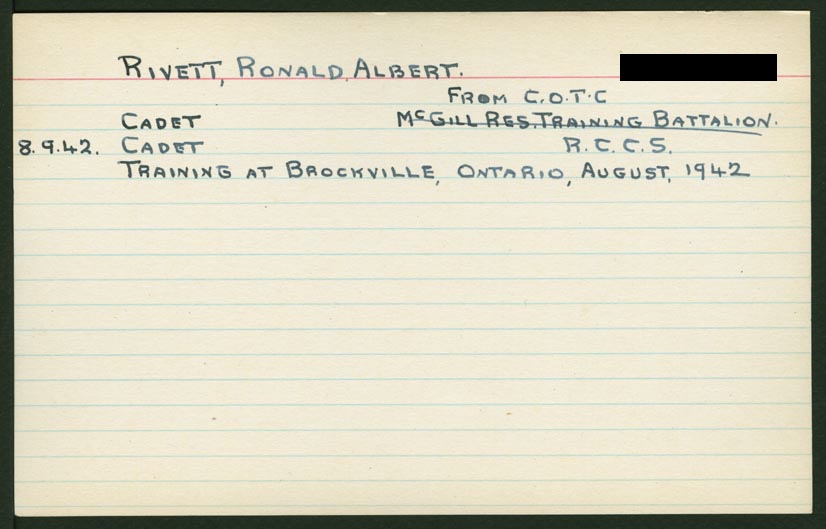 RIVETT, RONALD ALBERT.
FROM C.O.T.C
CADET McGILL RES. TRAINING BATTALION.
8.9.42. CADET R.C.C.S.
TRAINING AT BROCKVILLE, ONTARIO, AUGUST, 1942